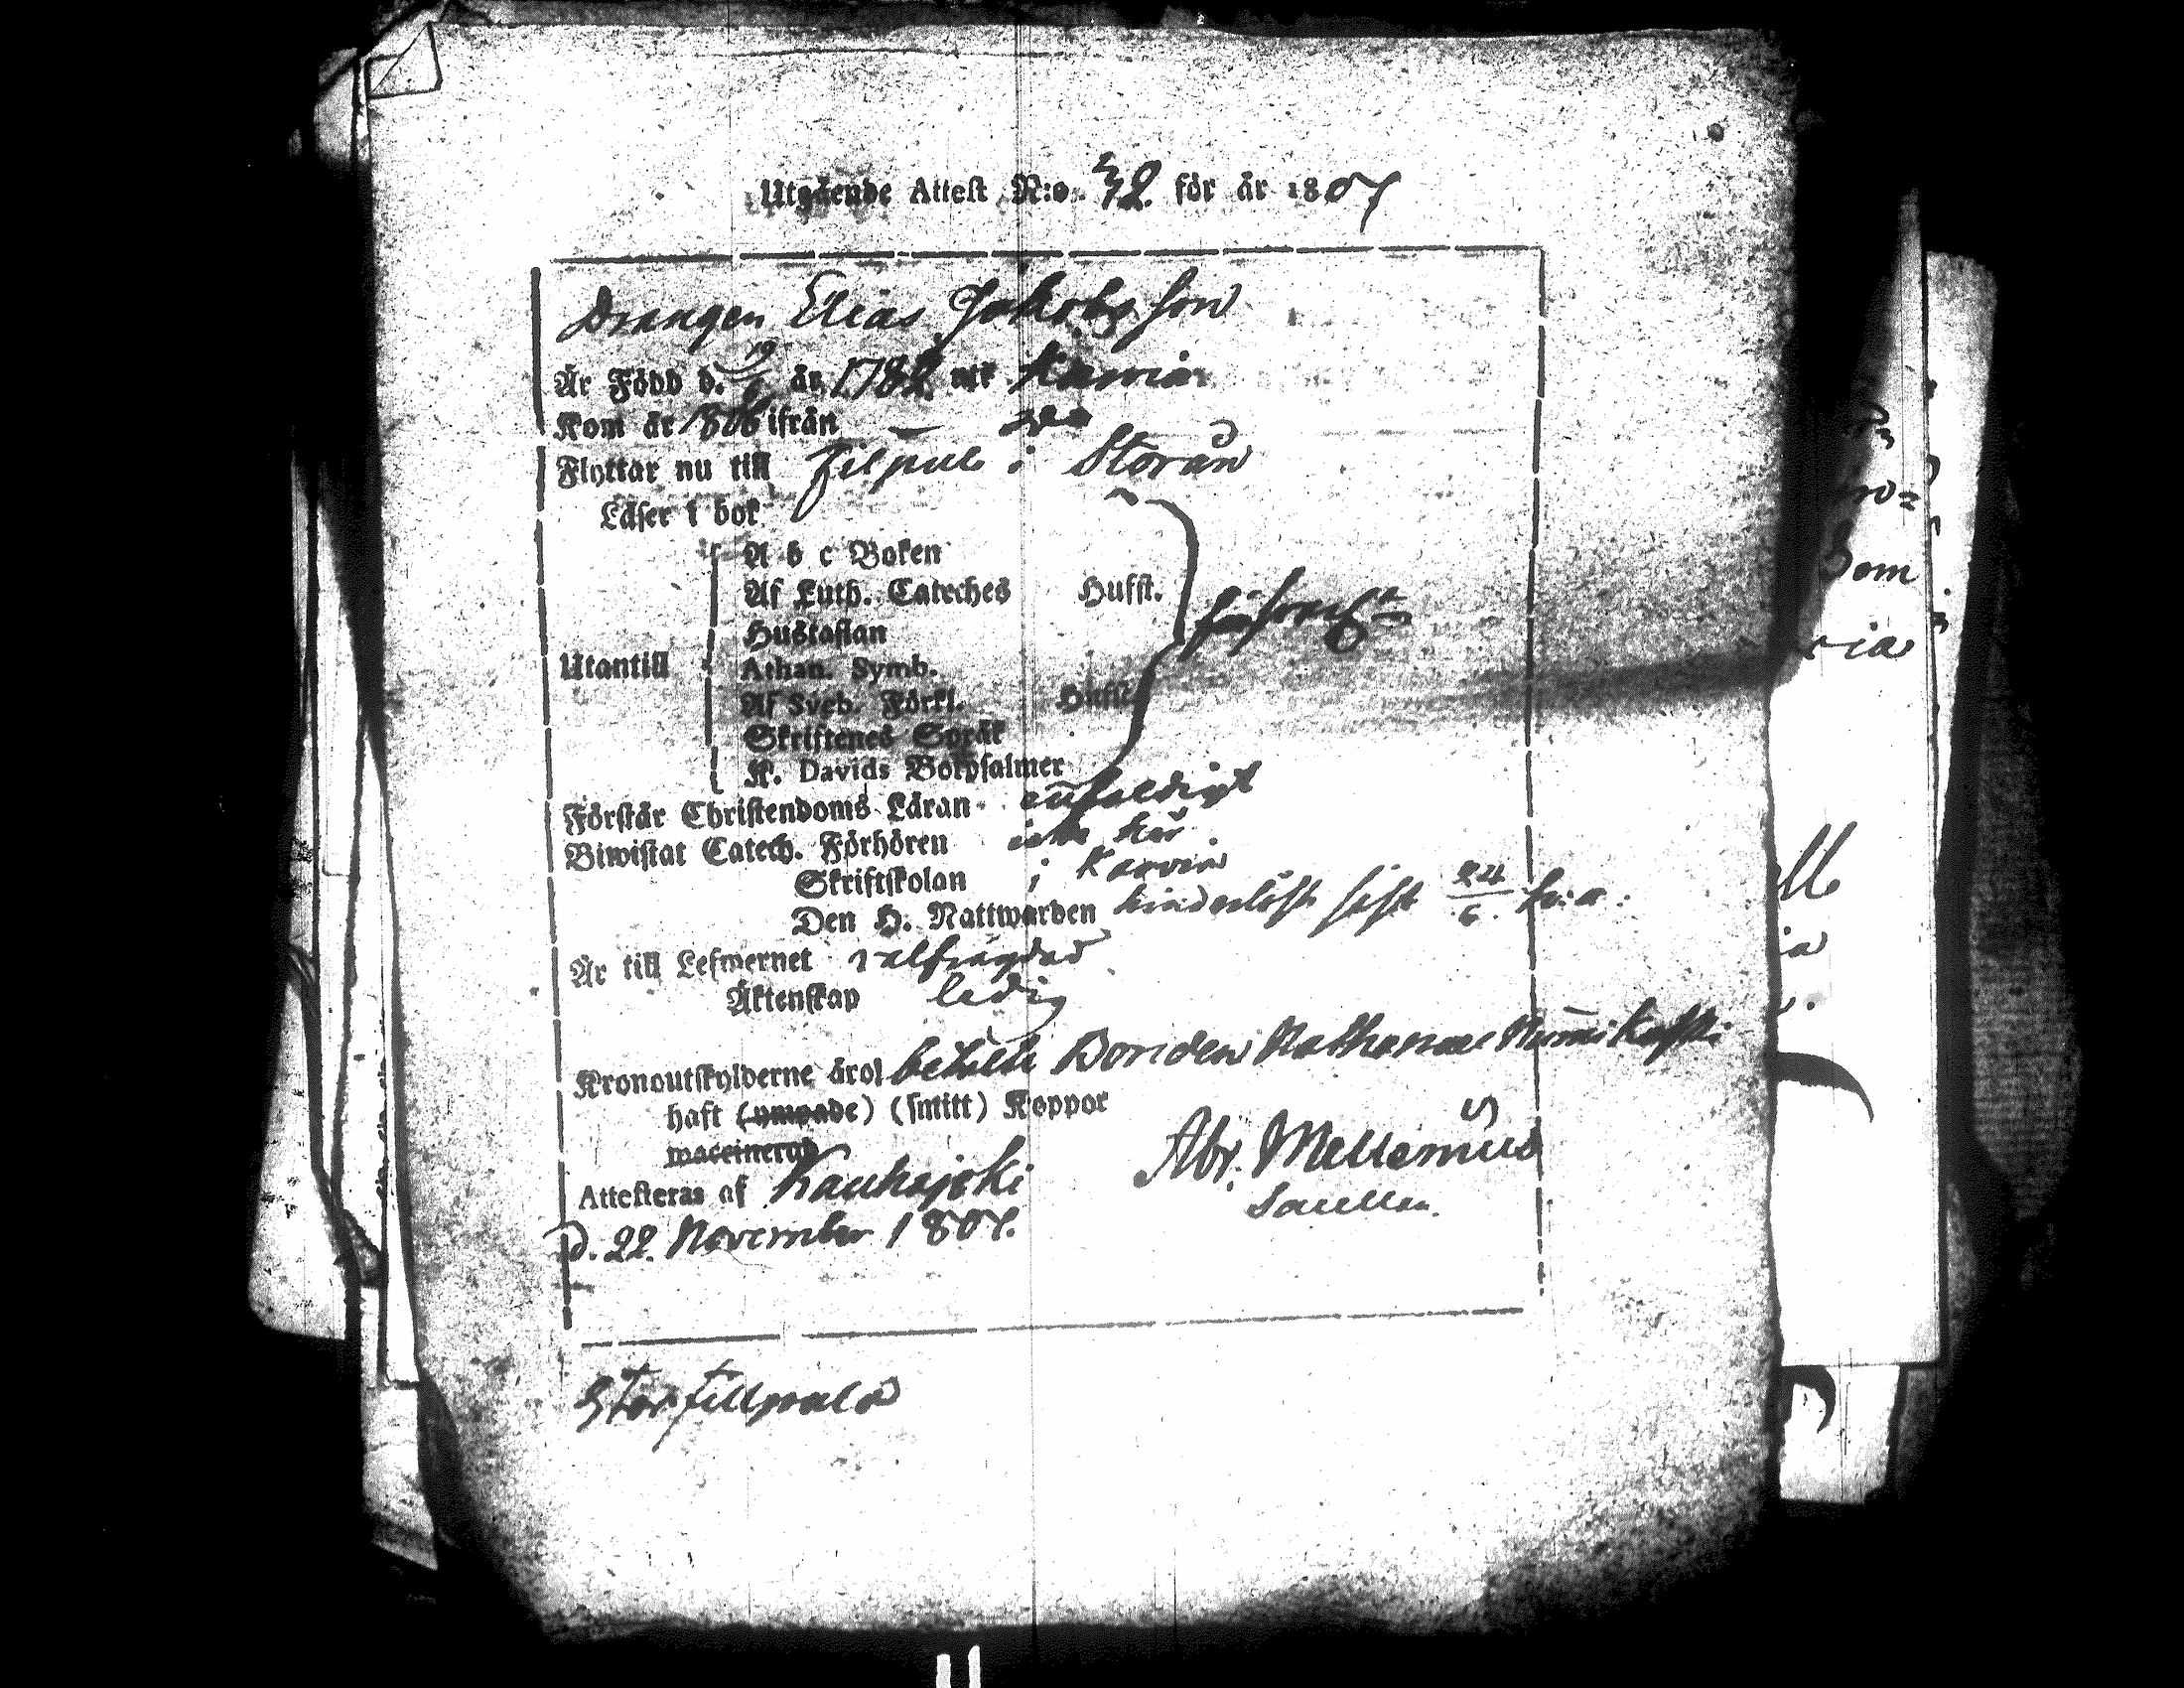 Utgående Attest N:o 72. för år 1807
Drangen Elias Jakobsson
Är Född d. 19/6 år 1782 uti Karvia
Kom år 1806 ifrån
Flyttar nu till Filpula i Storån
Läser i bok
A b c Boken
Af Luth. Cateches Huffst.
Hustaflan
Utantill Athan. Symb.
Af Sveb. Förkl. Huffst.
Skriftenes Språk
K. Davids Botpsalmer
Förstår Christendoms Läran enfaldigt
Biwistat Catech. Förhören
Skriftskolan i Karvia
Den H. Nattwarden hinderlöst sist 24/6 h: a.
Är till Lefwernet välfrägdad
Äktenskap ledig
Kronoutskylderne äro betalte
haft (ympade) (smitt) Koppor
waccinerad
Attesteras af Kauhajoki Abr. Mellenius
D. 22. November 1807.